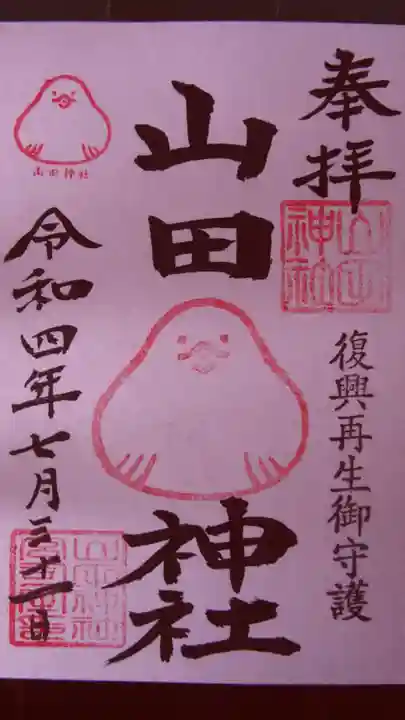 奉拝
山田神社
復興再生御守護
山田神社
山田神社
令和四年七月三十一日